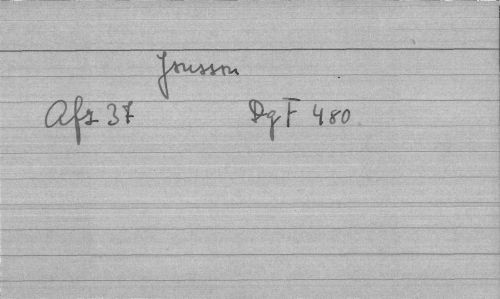 Jonsson
Afz 37 DgF 480